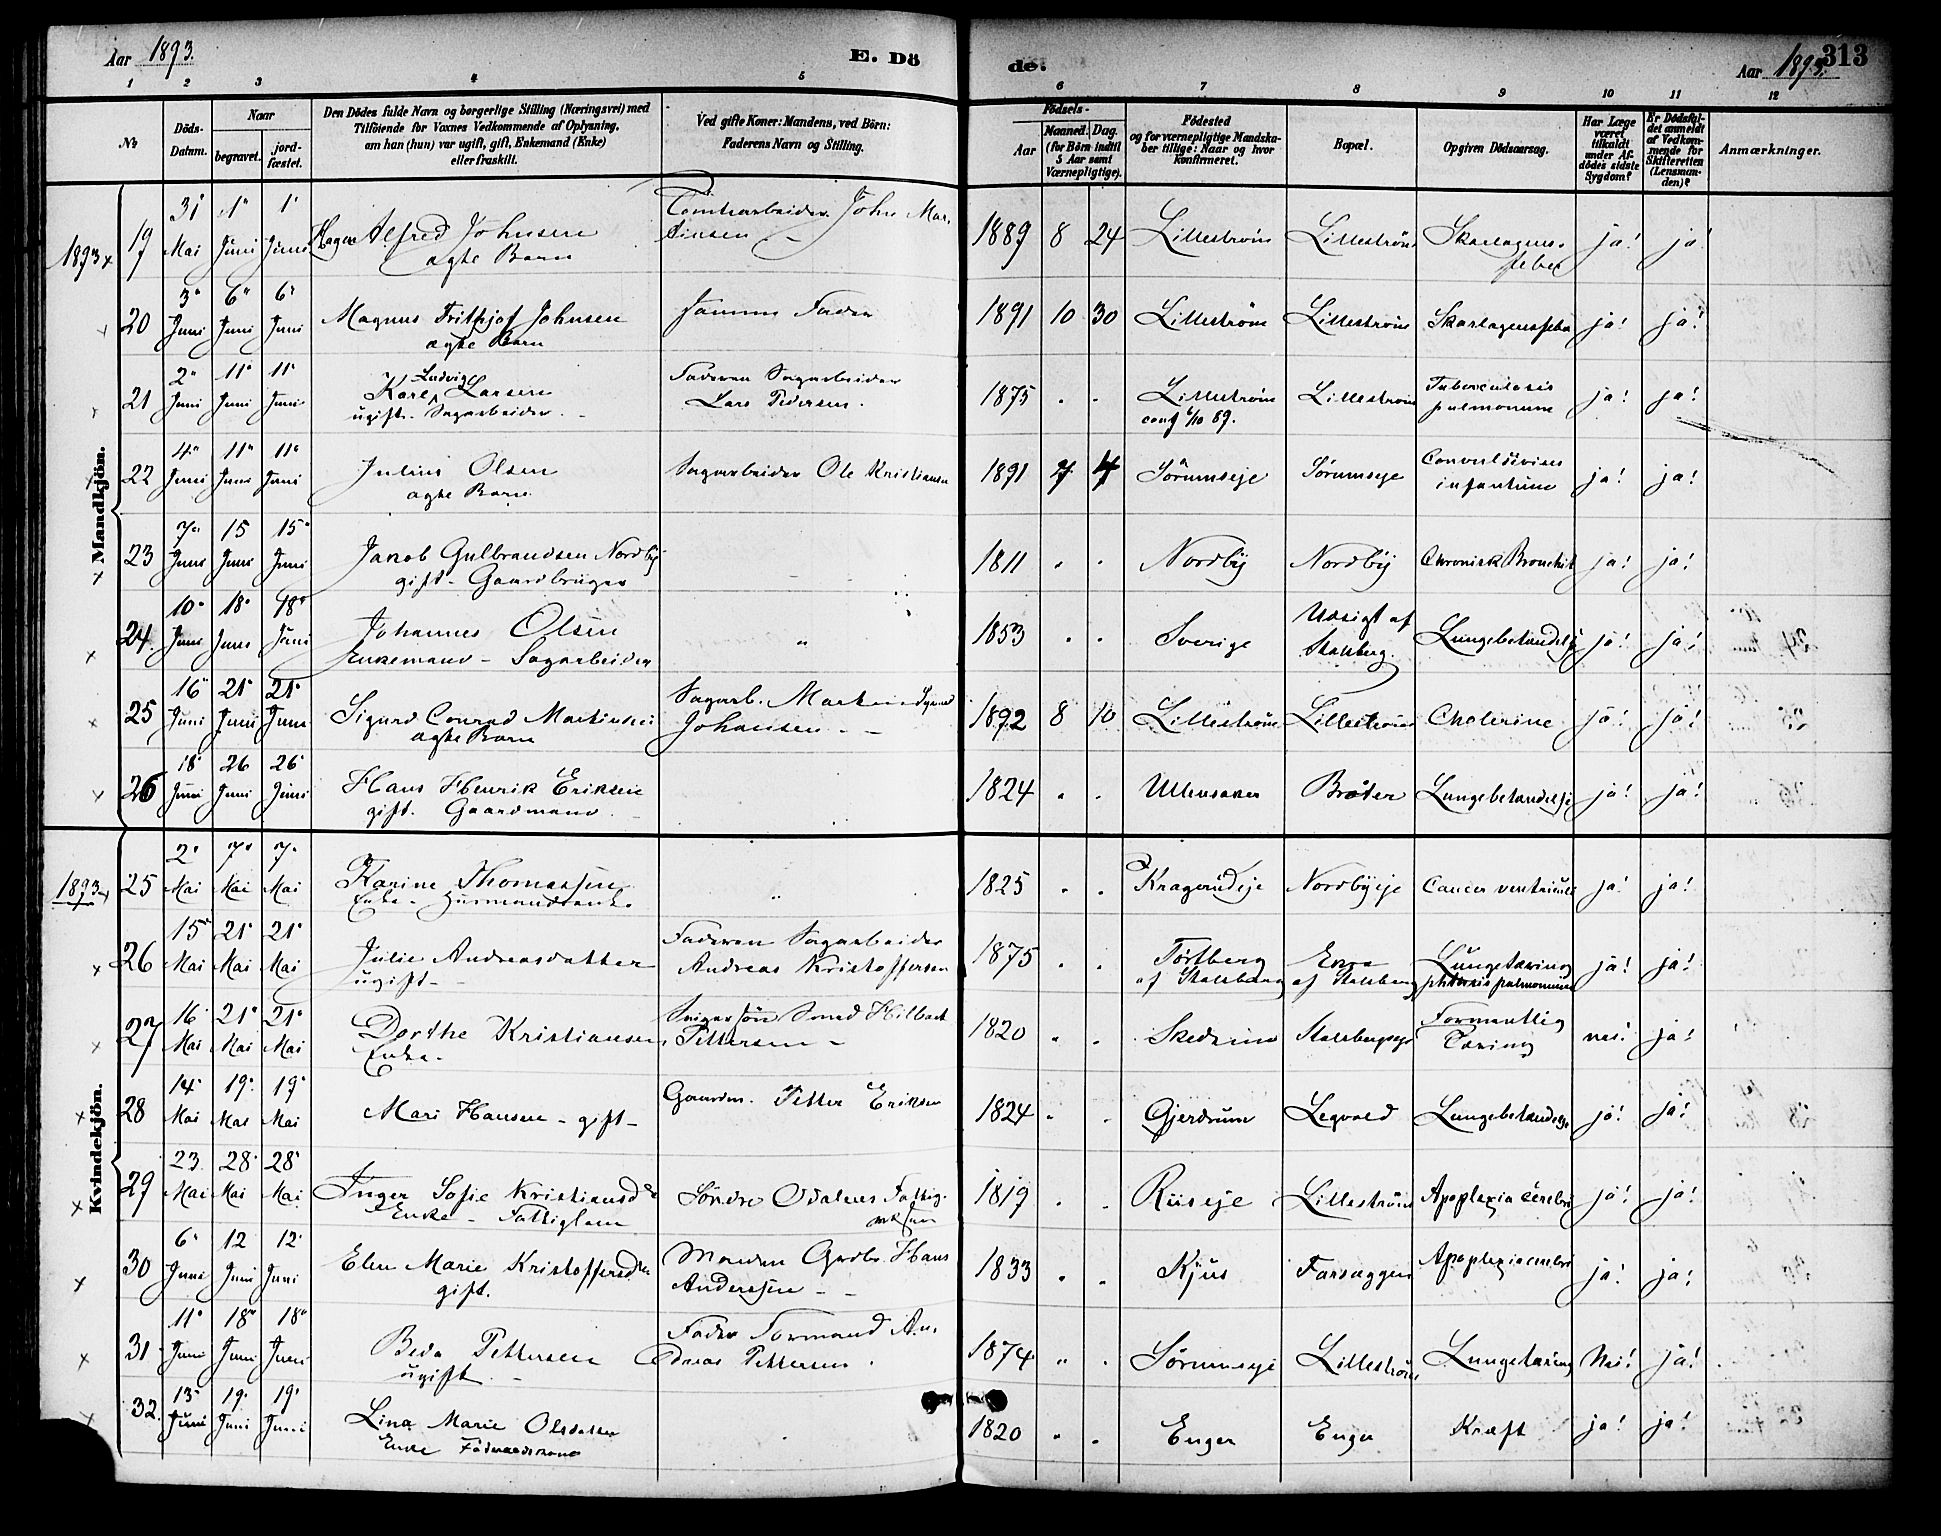 Aar 1893.
E. Dö
de.
Aar 1893.
313
1 2 3 4 5 6 7 8 9 10 11 12
No
Döds-
Datum.
Naar
begravet.
jord-
fæstet.
Den Dödes fulde Navn og borgerlige Stilling (Næringsvei) med
Tilföiende for Voxnes Vedkommende af Oplysning,
om han (hun) var ugift, gift, Enkemand (Enke)
eller fraskilt.
Ved gifte Koner: Mandens, ved Börn:
Faderens Navn og Stilling.
Födsels-
Aar
Maaned. Dag.
(for Börn indtil
5 Aar samt
Værnepligtige).
Födested
og for værnepligtige Mandska-
ber tillige: Naar og hvor
konfirmeret.
Bopæl.
Opgiven Dödsaarsag.
Har Læge
været
tilkaldt
under Af-
dødes sidste
Sygdom?
Er Dödsfal-
det anmeldt
af Vedkom-
mende for
Skifteretten
(Lensman-
den)?
Anmærkninger.
Mandkjön.
1893 x 19 31 Mai 1" Juni 1' Juni Hagen Alfred Johnsen
ægte Barn
Tomtearbeider John Mar-
tinsen
1889 8 24 Lilleström Lilleström Skarlagens-
feber ja! ja!
20 3" Juni 6" Juni 6" Juni Magnus Frithjof Johnsen
ægte Barn
samme Fader
1891 10 30 Lilleström Lilleström Skarlagensfeber ja! ja!
21 2" Juni 11" Juni 11" Juni Karl Ludvig Larsen
ugift. Sagarbeider.
Faderen Sagarbeider
Lars Pedersen.
1875 Lilleström
conf 6/10 89.
Lilleström Tuberculosis
pulmonum ja! ja!
22 4" Juni 11" Juni 11" Juni Julius Olsen
ægte Barn
Sagarbeider Ole Kristiansen
1891 7 4 Sörumseje Sörumseje Convulsiones
infantum ja! ja!
23 7" Juni 15 Juni 15" Juni Jacob Gulbrandsen Nordby
gift - Gaardbruger
1811 Nordby Nordby Chronisk Bronchit ja! ja!
24. 10" Juni 18" Juni 18" Juni Johannes Olsen
Enkemand - Sagarbeider
1853 Sverige Udsigt af
Stalsberg. Lungebetændelse ja! ja!
25 16" Juni 21" Juni 21" Juni Sigurd Conrad Martinsen
ægte Barn
Sagarb. Martin
Johansen
1892 8 10 Lilleström Lilleström Cholerine ja! ja!
26 18" Juni 26 Juni 26" Juni Hans Henrik Eriksen
gift. Gaardmand.
1824 Ullensaker Bråter Lungebetændelse ja! ja!
Kvindekjön.
1893 x 25 2" Mai 7" Mai 7" Mai Karine Thomassen
Enke - Husmandsenke.
1825 Kragerudeje Nordbyeje Cancer ventriculi ja! ja!
26 15" Mai 21" Mai 21" Mai Julie Andreasdatter
ugift -
Faderen Sagarbeider
Andreas Kristoffersen
1875 Törtberg
af Stalsberg
af Stalsberg Lungetæring
phthisis pulmonum ja! ja!
27 16" Mai 21" Mai 21" Mai Dorthe Kristiansen
Enke -
Svigersön Smed Hilbert
Pettersen -
1820 Skedsmo Stalsbergeje Formentlig
Tæring nei! ja!
28 14" Mai 19" Mai 19" Mai Mari Hansen - gift -
Gaardm. Petter Eriksen
1824 Gjerdrum Leqvold Lungebetændelse ja! ja!
29 23. Mai 28" Mai 28" Mai Inger Sofie Kristiansdtr
Enke - Fattiglem
Söndre Odalens Fattig-
væsen
1819 Riiseje Lilleström Apoplexia cerebri ja! ja!
30 6" Juni 12 Juni 12" Juni Elen Marie Kristoffersdtr
gift.
Manden Grdbr. Hans
Andersen
1833 Kjus Farseggen Apoplexia cerebri ja! ja!
31 11" Juni 18" Juni 18" Juni Beda Pettersen
ugift -
Fader Formand An-
dreas Pettersen.
1874 Sörumseje Lilleström Lungetæring Nei! ja!
32. 13" Juni 19" Juni 19" Juni Lina Marie Olsdatter
Enke Föderaadskone
1820 Enger Enger Kræft ja! ja!